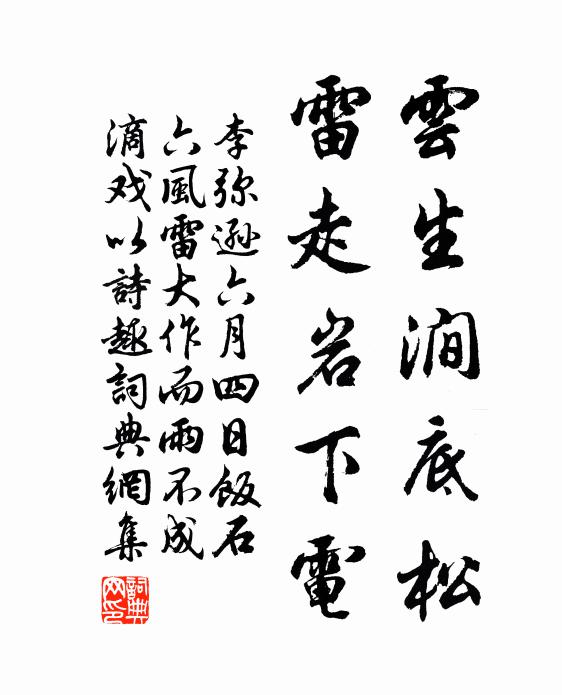 雲生澗底松
雷走岩下電
李弥遜六月四日飯石
六風雷大作而雨不成
滴戏以詩趣詞典網集
詞典